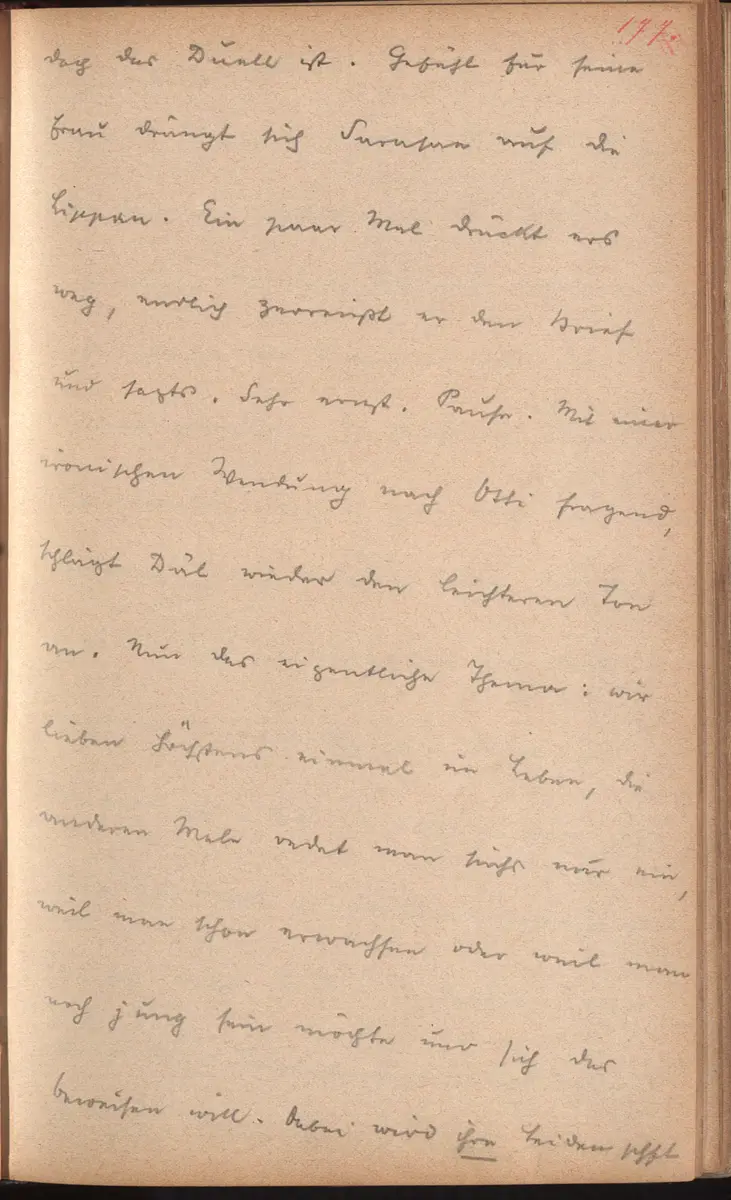 177
doch das Duell ist. Gefühl für seine
Frau drängt sich Sarasan auf die
Lippen. Ein paar Mal drückt ers
weg, endlich zerreißt er den Brief
und sagts. Sehr ernst. Pause. Mit einer
ironischen Wendung nach Otti fragend,
schlägt Däl wieder den leichteren Ton
an. Nun das eigentliche Thema: wir
lieben höchstens einmal im Leben, die
anderen Male redet man sichs nur ein,
weil man schon erwachsen oder weil man
noch jung sein möchte und sich das
beweisen will. Dabei wird ihre Leidenschft